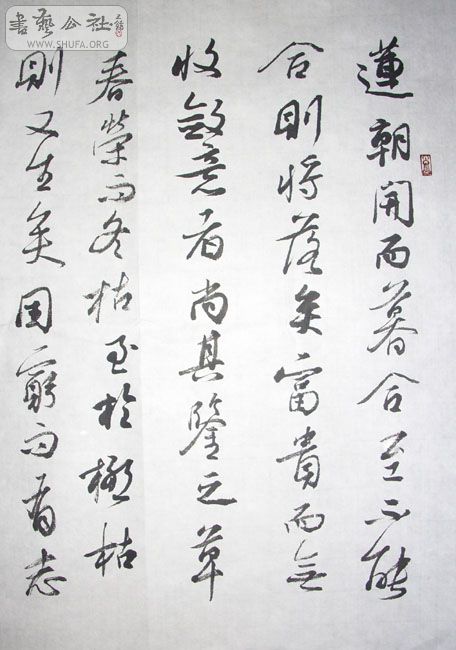 蓮朝開而暮合至不能
合則將落矣富貴而無
收斂意者尚其鑒之草
春榮而冬枯至於極枯
則又生矣困窮而有志
書藝公社
WWW.SHUFA.ORG